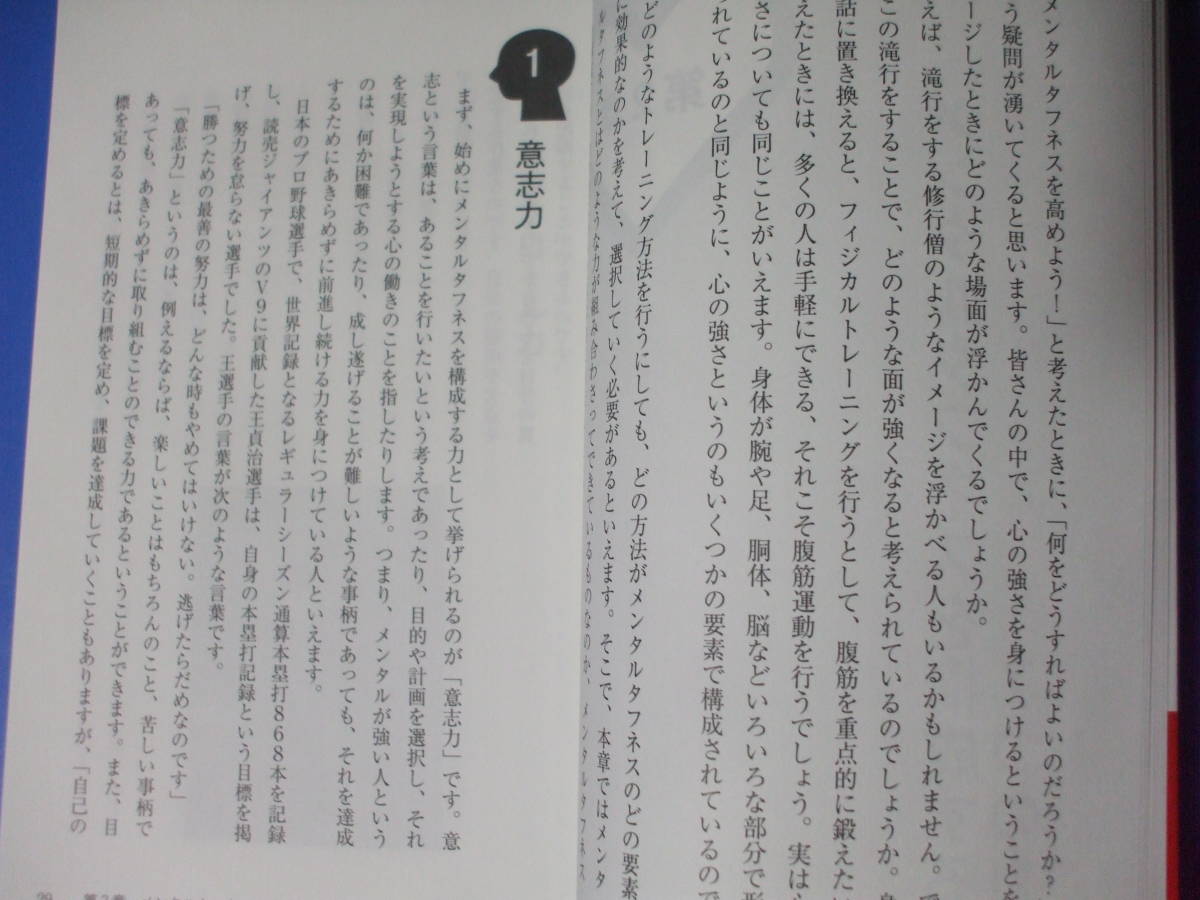 メンタルタフネスを高めよう!」と考えたときに、「何をどうすればよいのだろうか?
う疑問が湧いてくると思います。皆さんの中で、心の強さを身につけるということを
ージしたときにどのような場面が浮かんでくるでしょうか。
えば、滝行をする修行僧のようなイメージを浮かべる人もいるかもしれません。で
この滝行をすることで、どのような面が強くなると考えられているのでしょうか。身
話に置き換えると、フィジカルトレーニングを行うとして、腹筋を重点的に鍛えたい
えたときには、多くの人は手軽にできる、それこそ腹筋運動を行うでしょう。実は心
さについても同じことがいえます。身体が腕や足、胴体、脳などいろいろな部分で形
られているのと同じように、心の強さというのもいくつかの要素で構成されているので
どのようなトレーニング方法を行うにしても、どの方法がメンタルタフネスのどの要素
に効果的なのかを考えて、選択していく必要があるといえます。そこで、本章ではメンタ
ルタフネスとはどのような力が組み合わさってできているものなのか、メンタルタフネス
1
意志力
まず、始めにメンタルタフネスを構成する力として挙げられるのが「意志力」です。意
志という言葉は、あることを行いたいという考えであったり、目的や計画を選択し、それ
を実現しようとする心の働きのことを指したりします。つまり、メンタルが強い人という
のは、何か困難であったり、成し遂げることが難しいような事柄であっても、それを達成
するためにあきらめずに前進し続ける力を身につけている人といえます。
日本のプロ野球選手で、世界記録となるレギュラーシーズン通算本塁打868本を記録
し、読売ジャイアンツのV9に貢献した王貞治選手は、自身の本塁打記録という目標を掲
げ、努力を怠らない選手でした。王選手の言葉が次のような言葉です。
「勝つための最善の努力は、どんな時もやめてはいけない。逃げたらだめなのです」
「意志力」というのは、例えるならば、楽しいことはもちろんのこと、苦しい事柄で
あっても、あきらめずに取り組むことのできる力であるということができます。また、目
標を定めるとは、短期的な目標を定め、課題を達成していくこともありますが、「自己の